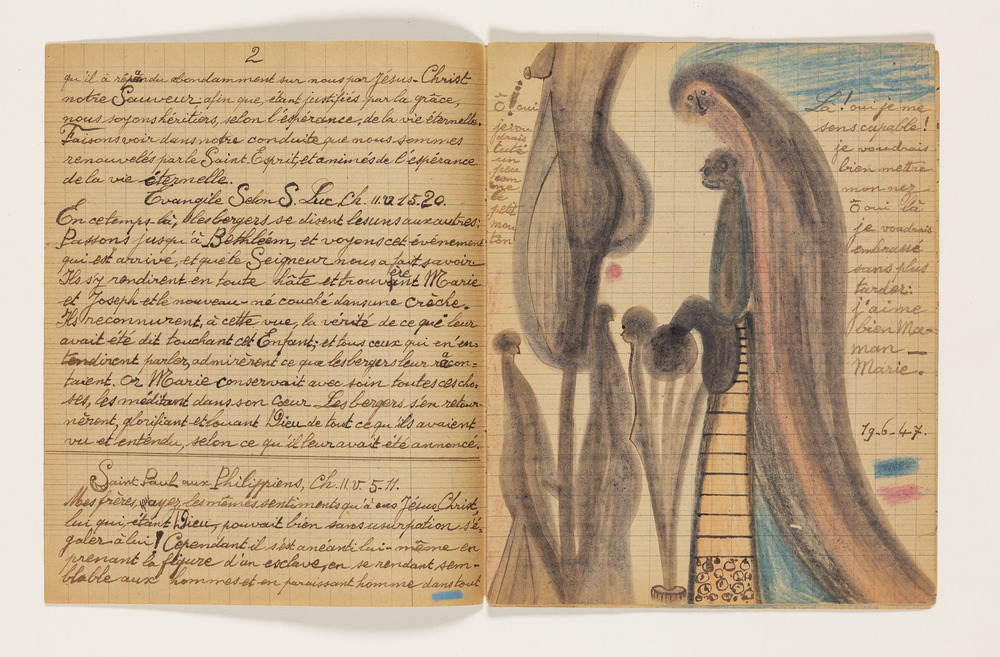 2
qu'il à répandu abondamment sur nous par Jésus-Christ
notre Sauveur, afin que, étant justifiés par la grâce,
nous soyons héritiers, selon l'espérance, de la vie éternelle.
Faisons voir dans notre conduite que nous sommes
renouvelés par le Saint Esprit, et animés de l'espérance
de la vie éternelle.
Evangile Selon S. Luc, Ch. 11. v. 15.20.
En ce temps là, les bergers se disent les uns aux autres:
Passons jusqu'à Bethléem, et voyons cet événement
qui est arrivé, et que le Seigneur nous a fait savoir
Ils s'y rendirent en toute hâte et trouvèrent Marie
et Joseph et le nouveau-né couché dans une Crèche.
Ils reconnurent, à cette vue, la vérité de ce que leur
avait été dit touchant cet Enfant; et tous ceux qui en en-
tendirent parler, admirèrent ce que les bergers leur racon-
taient. Or Marie conservait avec soin toutes ces cho-
ses, les méditant dans son Cœur. Les bergers s'en retour-
nèrent, glorifiant et louant Dieu de tout ce qu'ils avaient
vu et entendu, selon ce qu'il leur avait été annoncé.
Saint Paul aux Philippiens, Ch. 11. v. 5-11.
Mes frères, ayez les mêmes sentiments qu'à eus Jésus Christ,
lui qui, étant Dieu, pouvait bien sans usurpation s'é-
galer à lui! Cependant il s'est anéanti lui-même en
prenant la figure d'un esclave, en se rendant sem-
blable aux hommes et en paraissant homme dans tout
Ô! oui
je vou
drais
teté
un
peu
com
me
le
petit
mou
ton
Là! oui je me
sens capable!
je voudrais
bien mettre
mon nez
Ô oui là
je voudrais
embrassé
sans plus
tarder:
j'aime
bien Ma-
man —
Marie.
19-6-47.